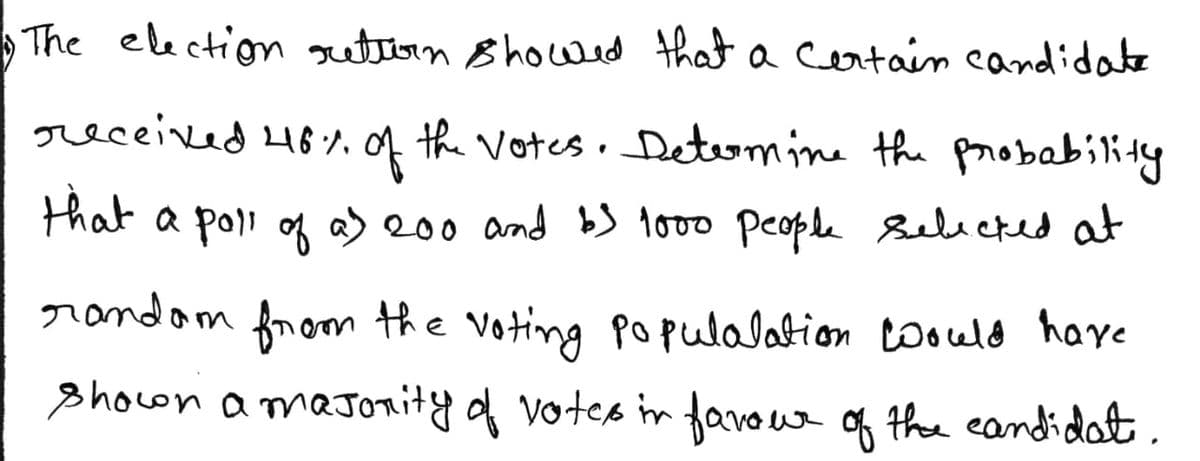 The election return showed that a Certain candidate
received 46%. of the Votes. Determine the probability
that a poll of a) 200 and b) 1000 people selected at
random from the voting Populalation would have
Shown a maJority of votes in favour of the candidat.